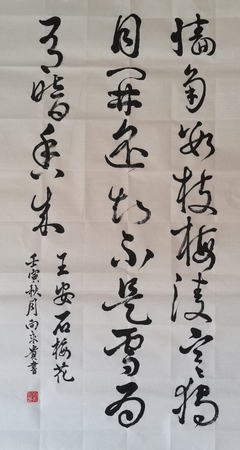 墙角数枝梅凌寒独
自開遥知不是雪为
有暗香来
王安石梅花
壬寅秋月向永貴書